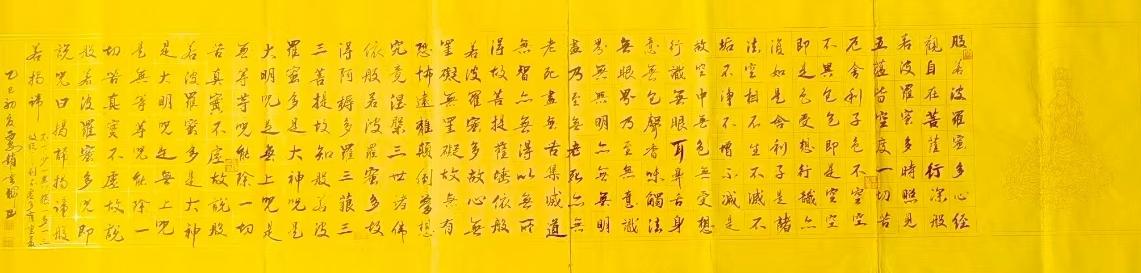 般若波羅蜜多心经
觀自在菩薩行深般
若波羅蜜多時照見
五蘊皆空度一切苦
厄舍利子色不空空
不異色色即是空空
即是色受想行識亦
復如是舍利子是諸
法空相不生不滅不
垢不淨不增不減是
故空中無色無受想
行識無眼耳鼻舌身
意無色聲香味觸法
無眼界乃至無意識
界無無明亦無無明
盡乃至無老死亦無
老死盡無苦集滅道
無智亦無得以無所
得故菩提薩埵依般
若波羅蜜多故心無
罣礙無罣礙故無有
恐怖遠離顛倒夢想
究竟涅槃三世諸佛
依般若波羅蜜多故
得阿耨多羅三藐三
三菩提故知般若波
羅蜜多是大神咒是
大明咒是無上咒是
無等等咒能除一切
苦真實不虛故說般
若波羅蜜多是大神
是大明咒是無上咒
是無等等咒能除一
切苦真實不虛故說
般若波羅蜜多咒即
說咒曰揭諦揭諦般
若揭諦
乙巳初